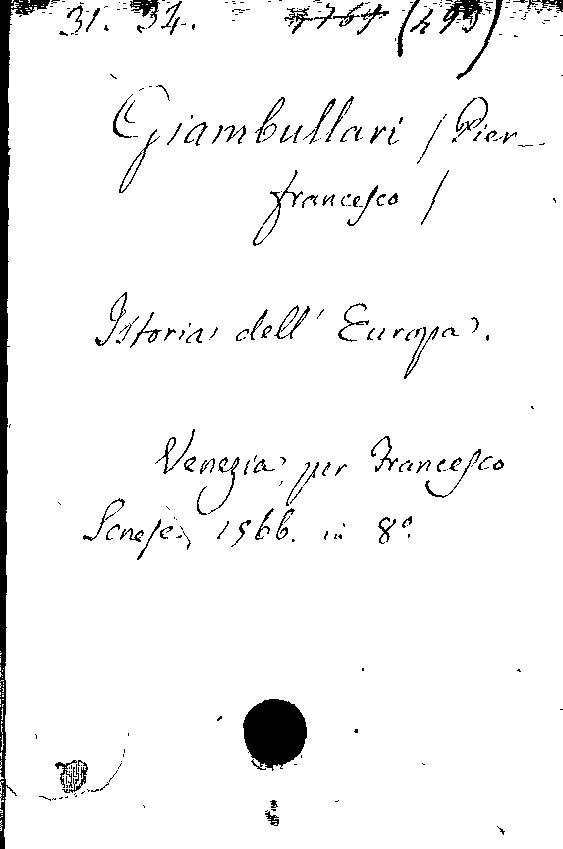 31. 34. 7769 (493)
Giambullari / Pier-
francesco /
Istoria dell' Europa.
Venezia, per Francesco
Senese, 1566. in 8º.